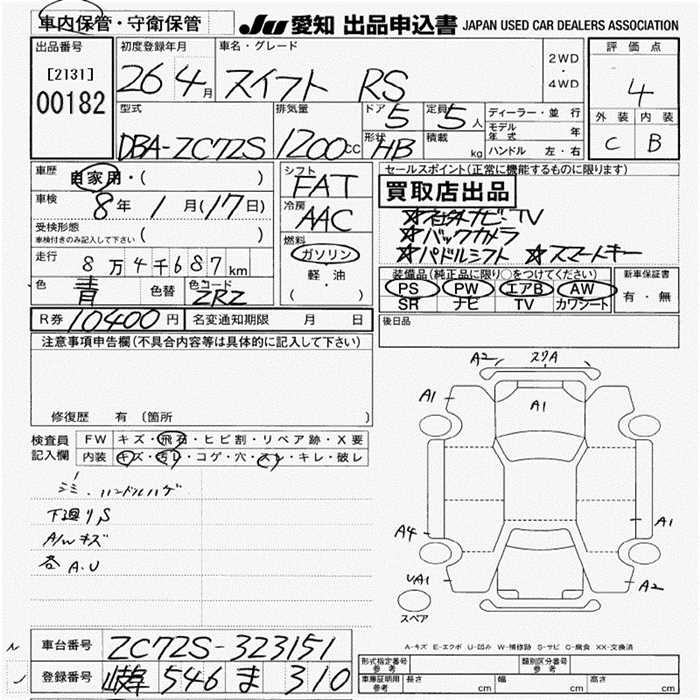 車内保管・守衛保管 JU 愛知 出品申込書 JAPAN USED CAR DEALERS ASSOCIATION
出品番号
[2131]
00182
初度登録年月
26 4月
車名・グレード
スイフト RS
2WD
・
4WD
評価点
4
外装 内装
C B
型式
DBA-ZC72S
排気量
1200CC
ドア 5
形状 HB
定員 5人
積載 kg
ディーラー・並行
モデル年式 年
ハンドル 左・右
車歴 自家用・( )
車検 8年 1月(17日)
受検形態
車検付きのみ記入して下さい ( )
走行 8万4千687km
色 青 色替 色コード ZRZ
シフト FAT
冷房 AAC
燃料
ガソリン
軽・油
( )
セールスポイント(正常に機能するものに限ります)
買取店出品
☆社外ナビ・TV
☆バックカメラ
☆パドルシフト ☆スマートキー
装備品(純正品に限り○をつけてください)
PS PW エアB AW
SR ナビ TV カワシート
新車保証書
有・無
R券 10400円 名変通知期限 月 日
後日品
注意事項申告欄(不具合内容等は具体的に記入して下さい)
修復歴 有 (箇所 )
検査員
記入欄
FW キズ・飛石・ヒビ割・リペア跡・X要
内装 キズ・汚レ・コゲ・穴・スレ・キレ・破レ
シミ・ハンドルハゲ
下廻りS
A/Wキズ
各A.U
A2 スリA
A1 A1
A4 A1
UA1 A2
スペア
A-キズ E-エクボ U-凹み W-補修跡 S-サビ C-腐食 XX-交換済
車台番号 ZC72S-323151
登録番号 岐阜 546 ま 310
形式指定番号
参考
類別区分番号
参考
車庫証明用
参考
長さ cm 幅 cm 高さ cm